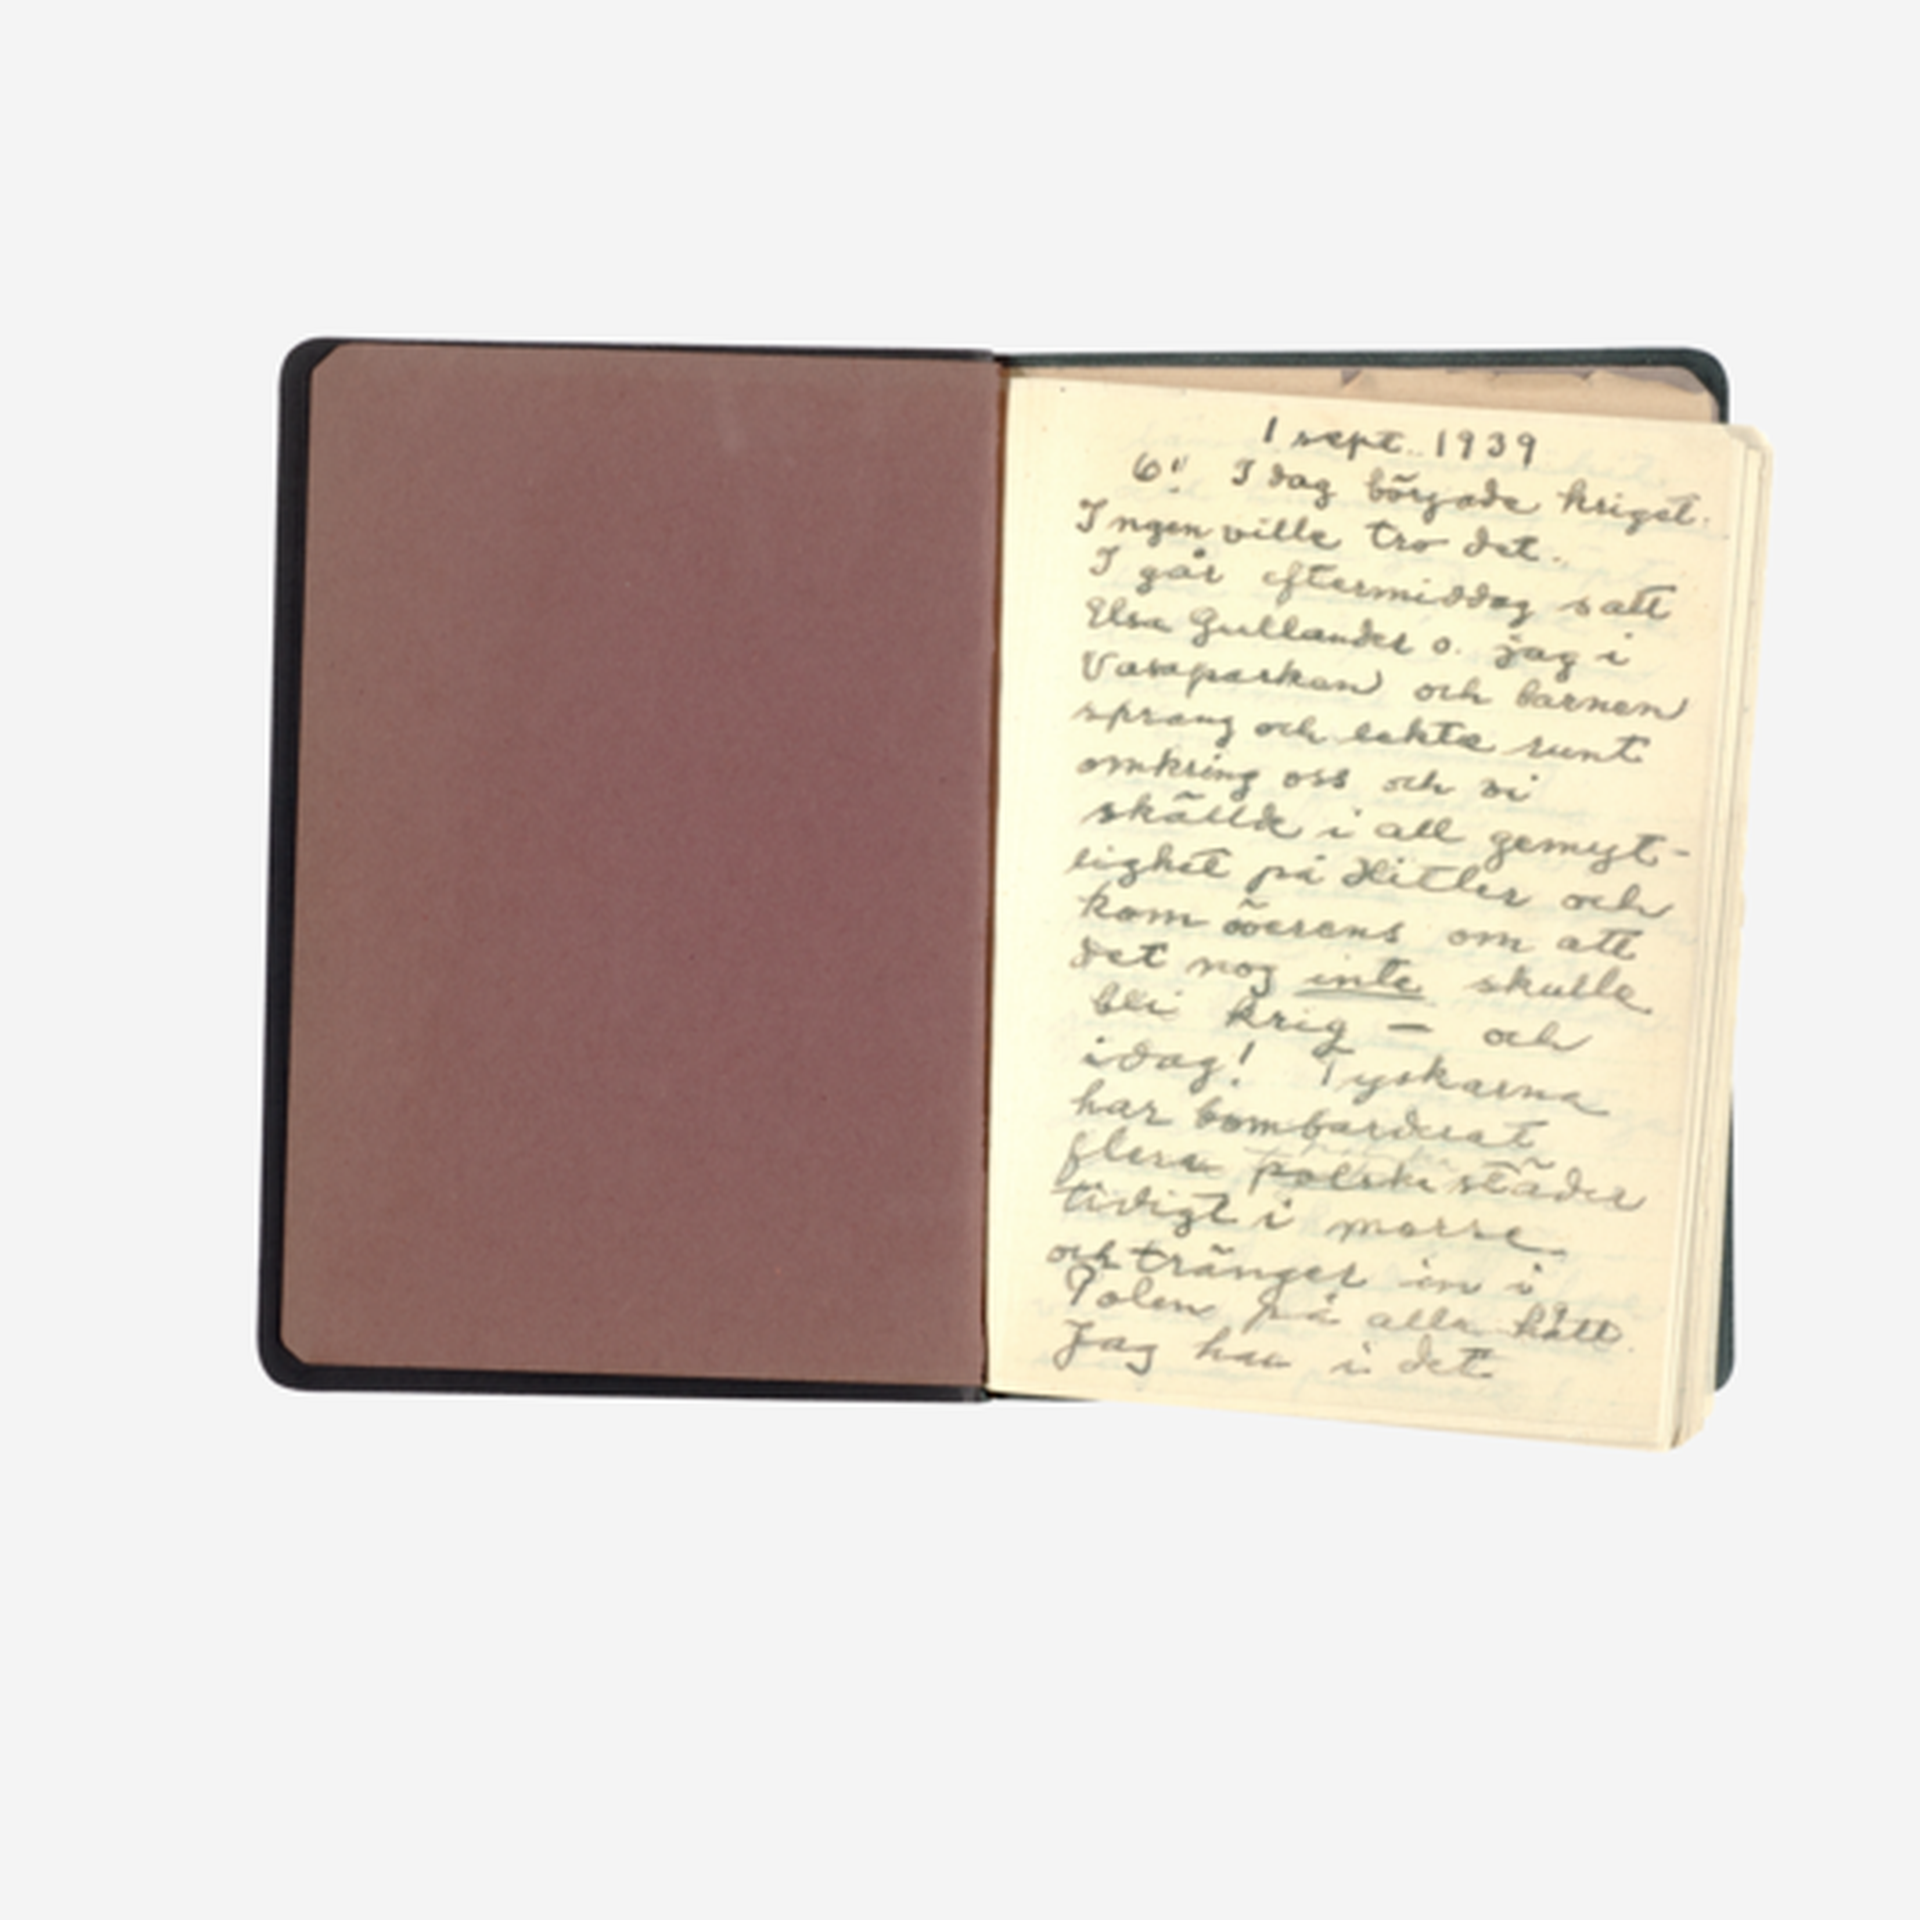 1 sept. 1939
I dag började kriget.
Ingen ville tro det.
I går eftermiddag satt
Elsa Gullander o. jag i
Vasaparken och barnen
sprang och lekte runt
omkring oss och vi
skällde i all gemyt-
lighet på Hitler och
kom överens om att
det nog inte skulle
bli krig — och
idag! Tyskarna
har bombarderat
flera polska städer
tidigt i morse
och tränger in i
Polen på alla håll.
Jag har i det